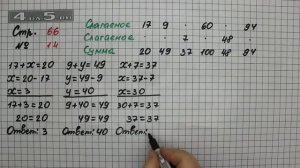 4 ДВ 5.ru
Стр. 66
№ 14
Слагаемое 17 9 · 60 · 94
Слагаемое · · 7 · 48 ·
Сумма 20 49 37 100 48 94
17+x=20 9+y=49 x+7=37
x=20-17 y=49-9 x=37-7
x=3 y=40 x=30
17+3=20 9+40=49 30+7=37
20=20 49=49 37=37
Ответ: 3 Ответ: 40 Ответ: